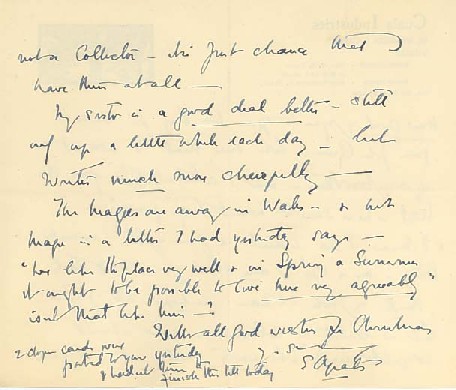 not a Collector – it's just chance that I
have them at all –
My sister is a good deal better – still
up a little while each day – but
writes much more cheerfully –
The Magees are away in Wales – so but
Magee in a letter I had yesterday says –
"We like the place very well & in Spring & Summer
it ought to be possible to live here very agreeably"
isn't that like him – ?
With all good wishes for Christmas
2 dozen cards were
posted to you yesterday
I hadn't time to
finish this till today